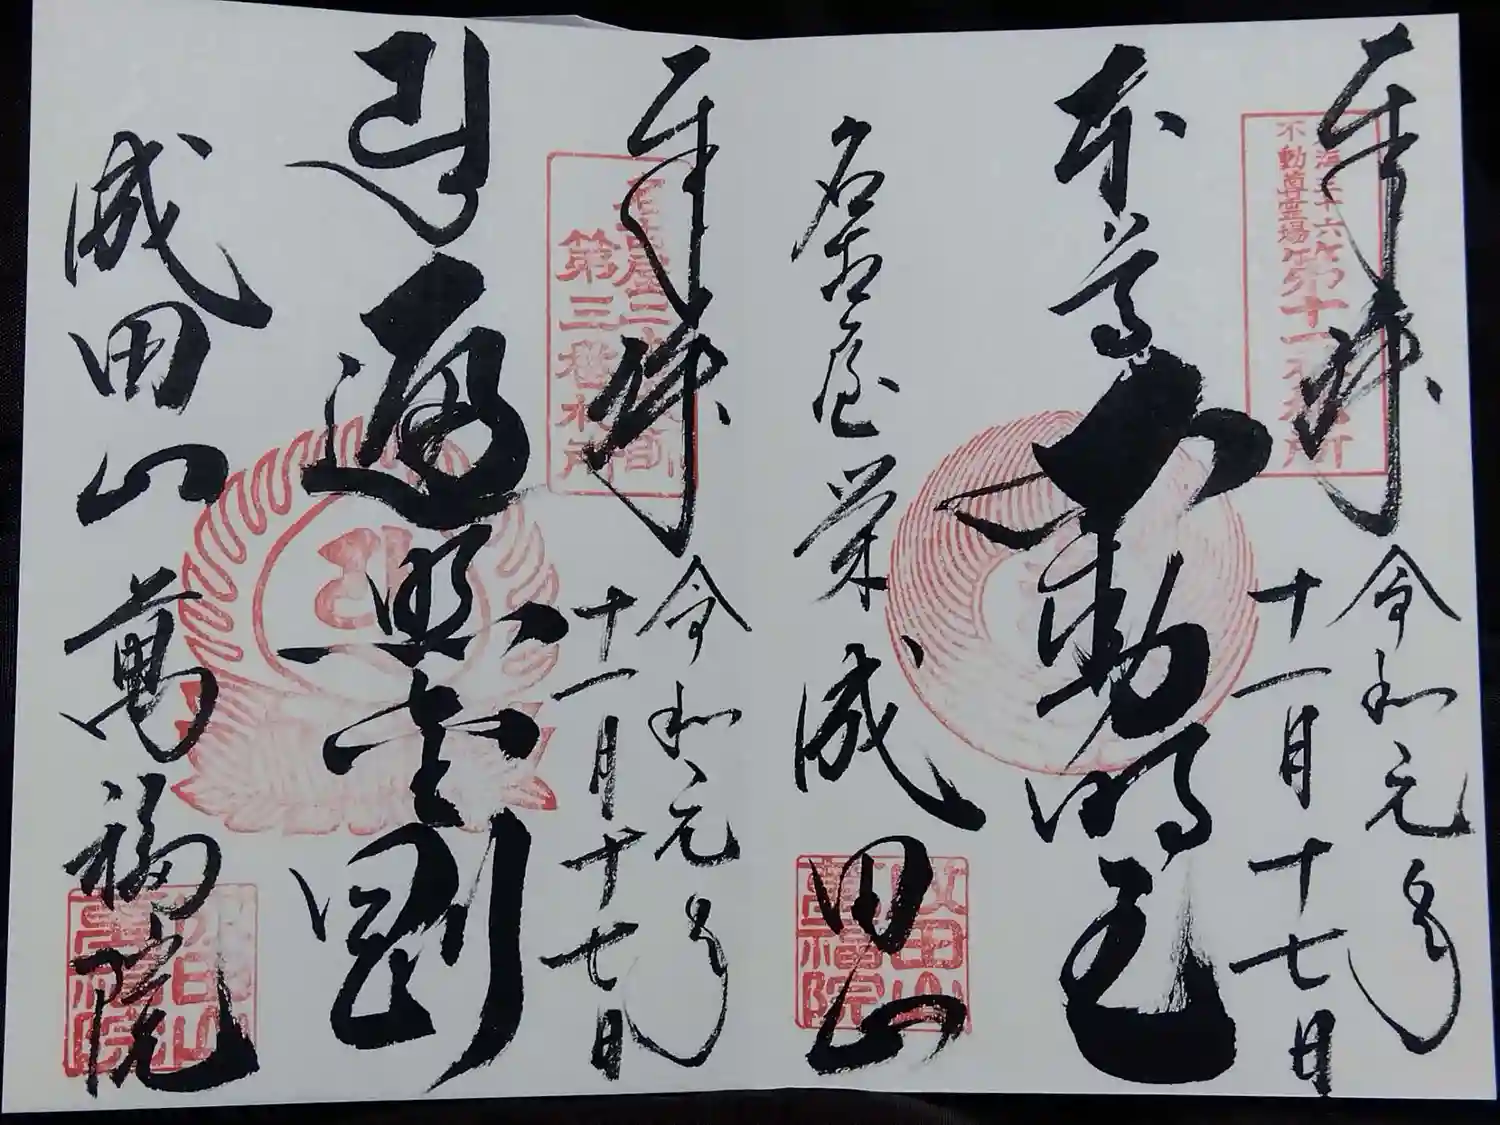 奉拝
令和元年
十一月十七日
東海三十六不動尊霊場第十一番札所
本尊
不動明王
名古屋栄
成田山
成田山
萬福院
奉拝
令和元年
十一月十七日
第三番札所
遍照金剛
成田山
萬福院
成田山
萬福院